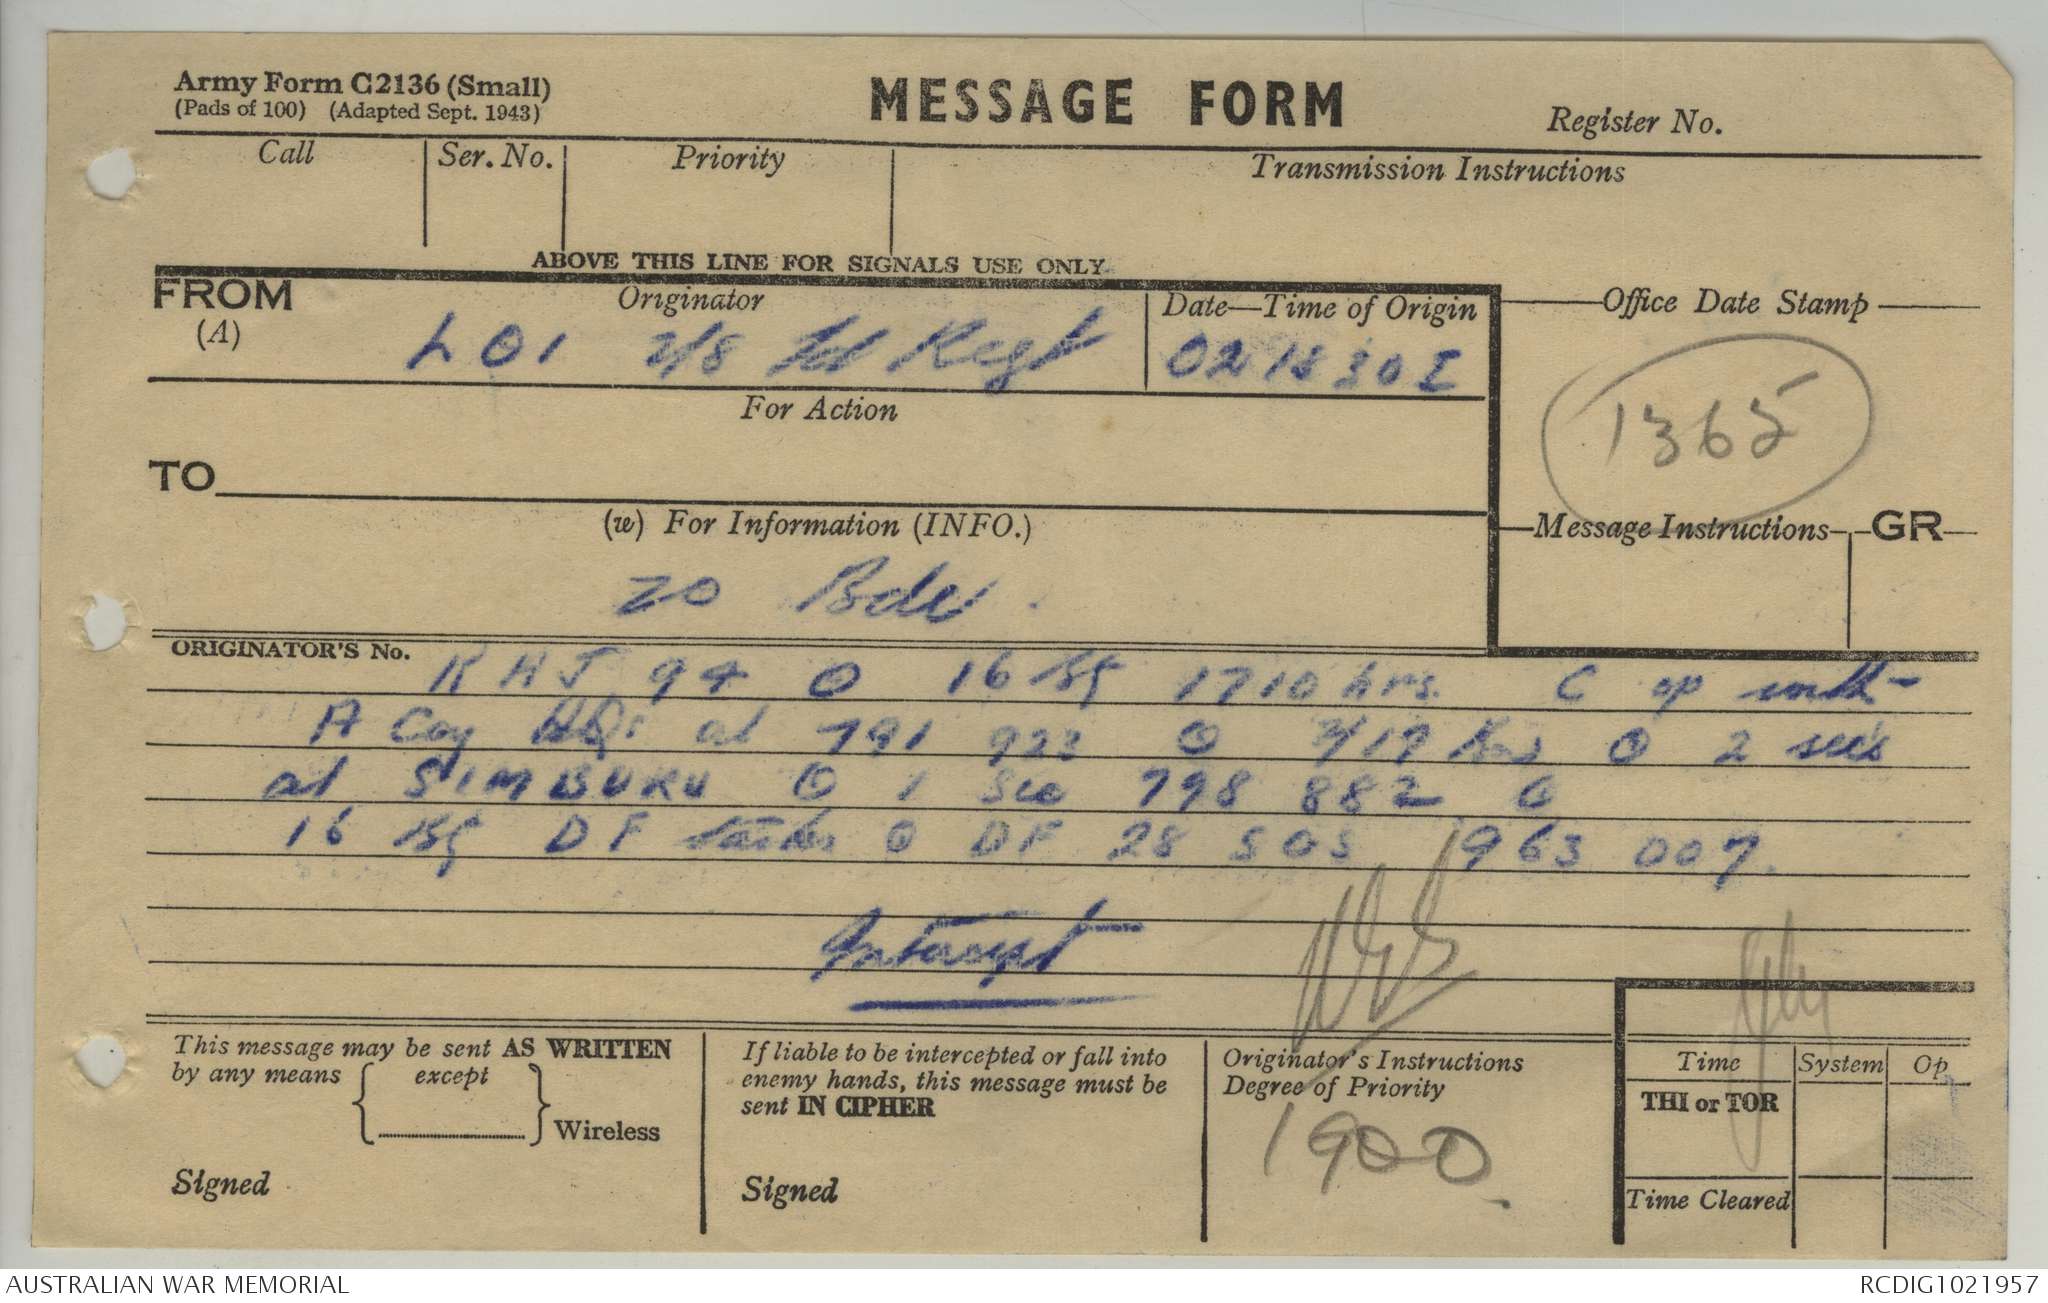 Army Form C2136 (Small)
(Pads of 100) (Adapted Sept. 1943)
MESSAGE FORM
Register No.
Call
Ser. No.
Priority
Transmission Instructions
ABOVE THIS LINE FOR SIGNALS USE ONLY
FROM
(A)
Originator
LO1 2/8 Fd Regt
Date—Time of Origin
021830I
Office Date Stamp
1365
For Action
TO
(w) For Information (INFO.)
20 Bde
Message Instructions
GR
ORIGINATOR'S No.
KHJ 94 O 16 Bty 1710 hrs. C op with
A Coy at 791 923 O 2/17 O 2 secs
at SIMBUKU O 1 Sec 798 882 O
16 Bty DF tasks O DF 28 SOS 963 007.
Intercept
This message may be sent AS WRITTEN
by any means except
Wireless
Signed
If liable to be intercepted or fall into
enemy hands, this message must be
sent IN CIPHER
Signed
Originator's Instructions
Degree of Priority
1900
Time
System
Op
THI or TOR
Time Cleared
AUSTRALIAN WAR MEMORIAL
RCDIG1021957